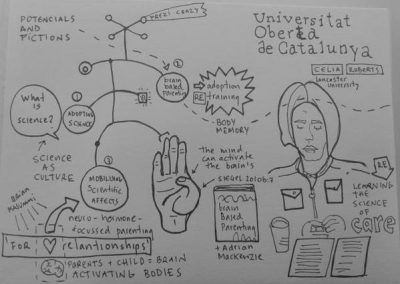 POTENCIALS
AND
FICTIONS
PREZI CRAZY
Universitat
Oberta
de Catalunya
CELIA ROBERTS
lancaster
university
2
brain
based
parenting
RE
adoption
training
BODY
MEMORY
What
is
science?
1
ADOPTING
SCIENCE
SCIENCE
AS
CULTURE
3
MOBILISING
Scientific
AFFECTS
The mind
can activate
the brain's
SIEGEL 2010b:7
brain
Based
Parenting
+ Adrian
MacKenzie
RE
LEARNING
THE
SCIENCE
OF
care
Brian
Massumi
neuro-hormone-
focussed parenting
FOR
relationships
PARENTS + CHILD = BRAIN
ACTIVATING BODIES